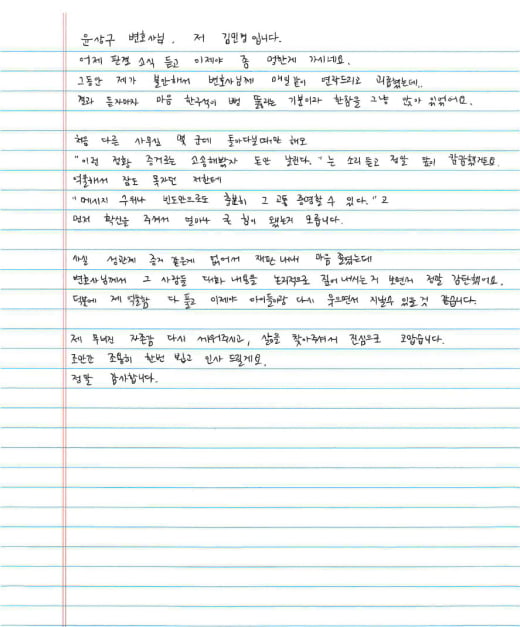 윤상구 변호사님. 저 김민경입니다.
어제 판결 소식 듣고 이제야 좀 멍한게 가시네요.
그동안 제가 불안해서 변호사님께 매일같이 연락드리고 괴롭혔는데..
결과 듣자마자 마음 한구석이 뻥 뚫리는 기분이라 한참을 그냥 앉아 있었어요.
처음 다른 사무실 몇 군데 돌아다녔을때만 해도
"이런 정황 증거로는 소송해봤자 돈만 날린다." 는 소리 듣고 정말 앞이 캄캄했거든요.
억울해서 잠도 못자던 저한테
"메시지 수위나 빈도만으로도 충분히 그 고통 증명할 수 있다." 고
먼저 확신을 주셔서 얼마나 큰 힘이 됐는지 모릅니다.
사실 성관계 증거 같은게 없어서 재판 내내 마음 졸였는데
변호사님께서 그 사람들 대화 내용을 논리적으로 짚어 내시는 거 보면서 정말 감탄했어요.
덕분에 제 억울함 다 풀고 이제야 아이들이랑 다시 웃으면서 지낼수 있을 것 같습니다.
제 무너진 자존감 다시 세워주시고, 삶을 찾아주셔서 진심으로 고맙습니다.
조만간 조용히 한번 뵙고 인사 드릴게요.
정말 감사합니다.